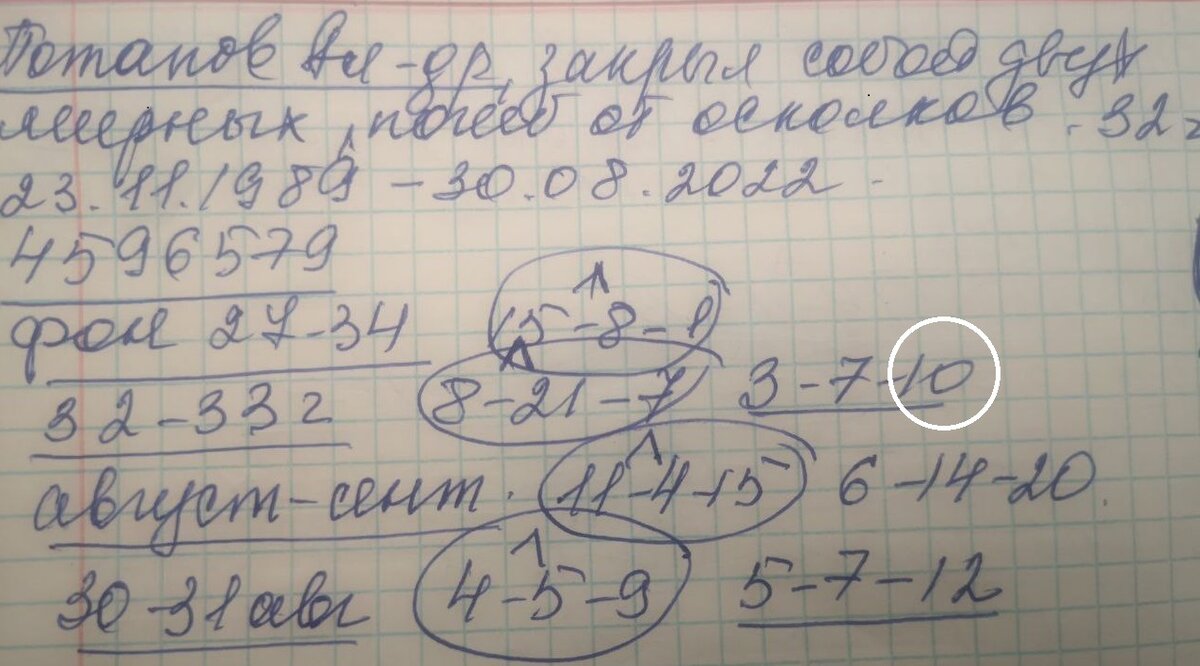 Потапов Вл-др, закрыл собой двух
мирных, погиб от осколков. 32г
23.11.1989 - 30.08.2022.
4596579
фон 27-34 15-8-1
32-33г 8-21-7 3-7-10
август-сент. 11-4-15 6-14-20.
30-31 авг 4-5-9 5-7-12